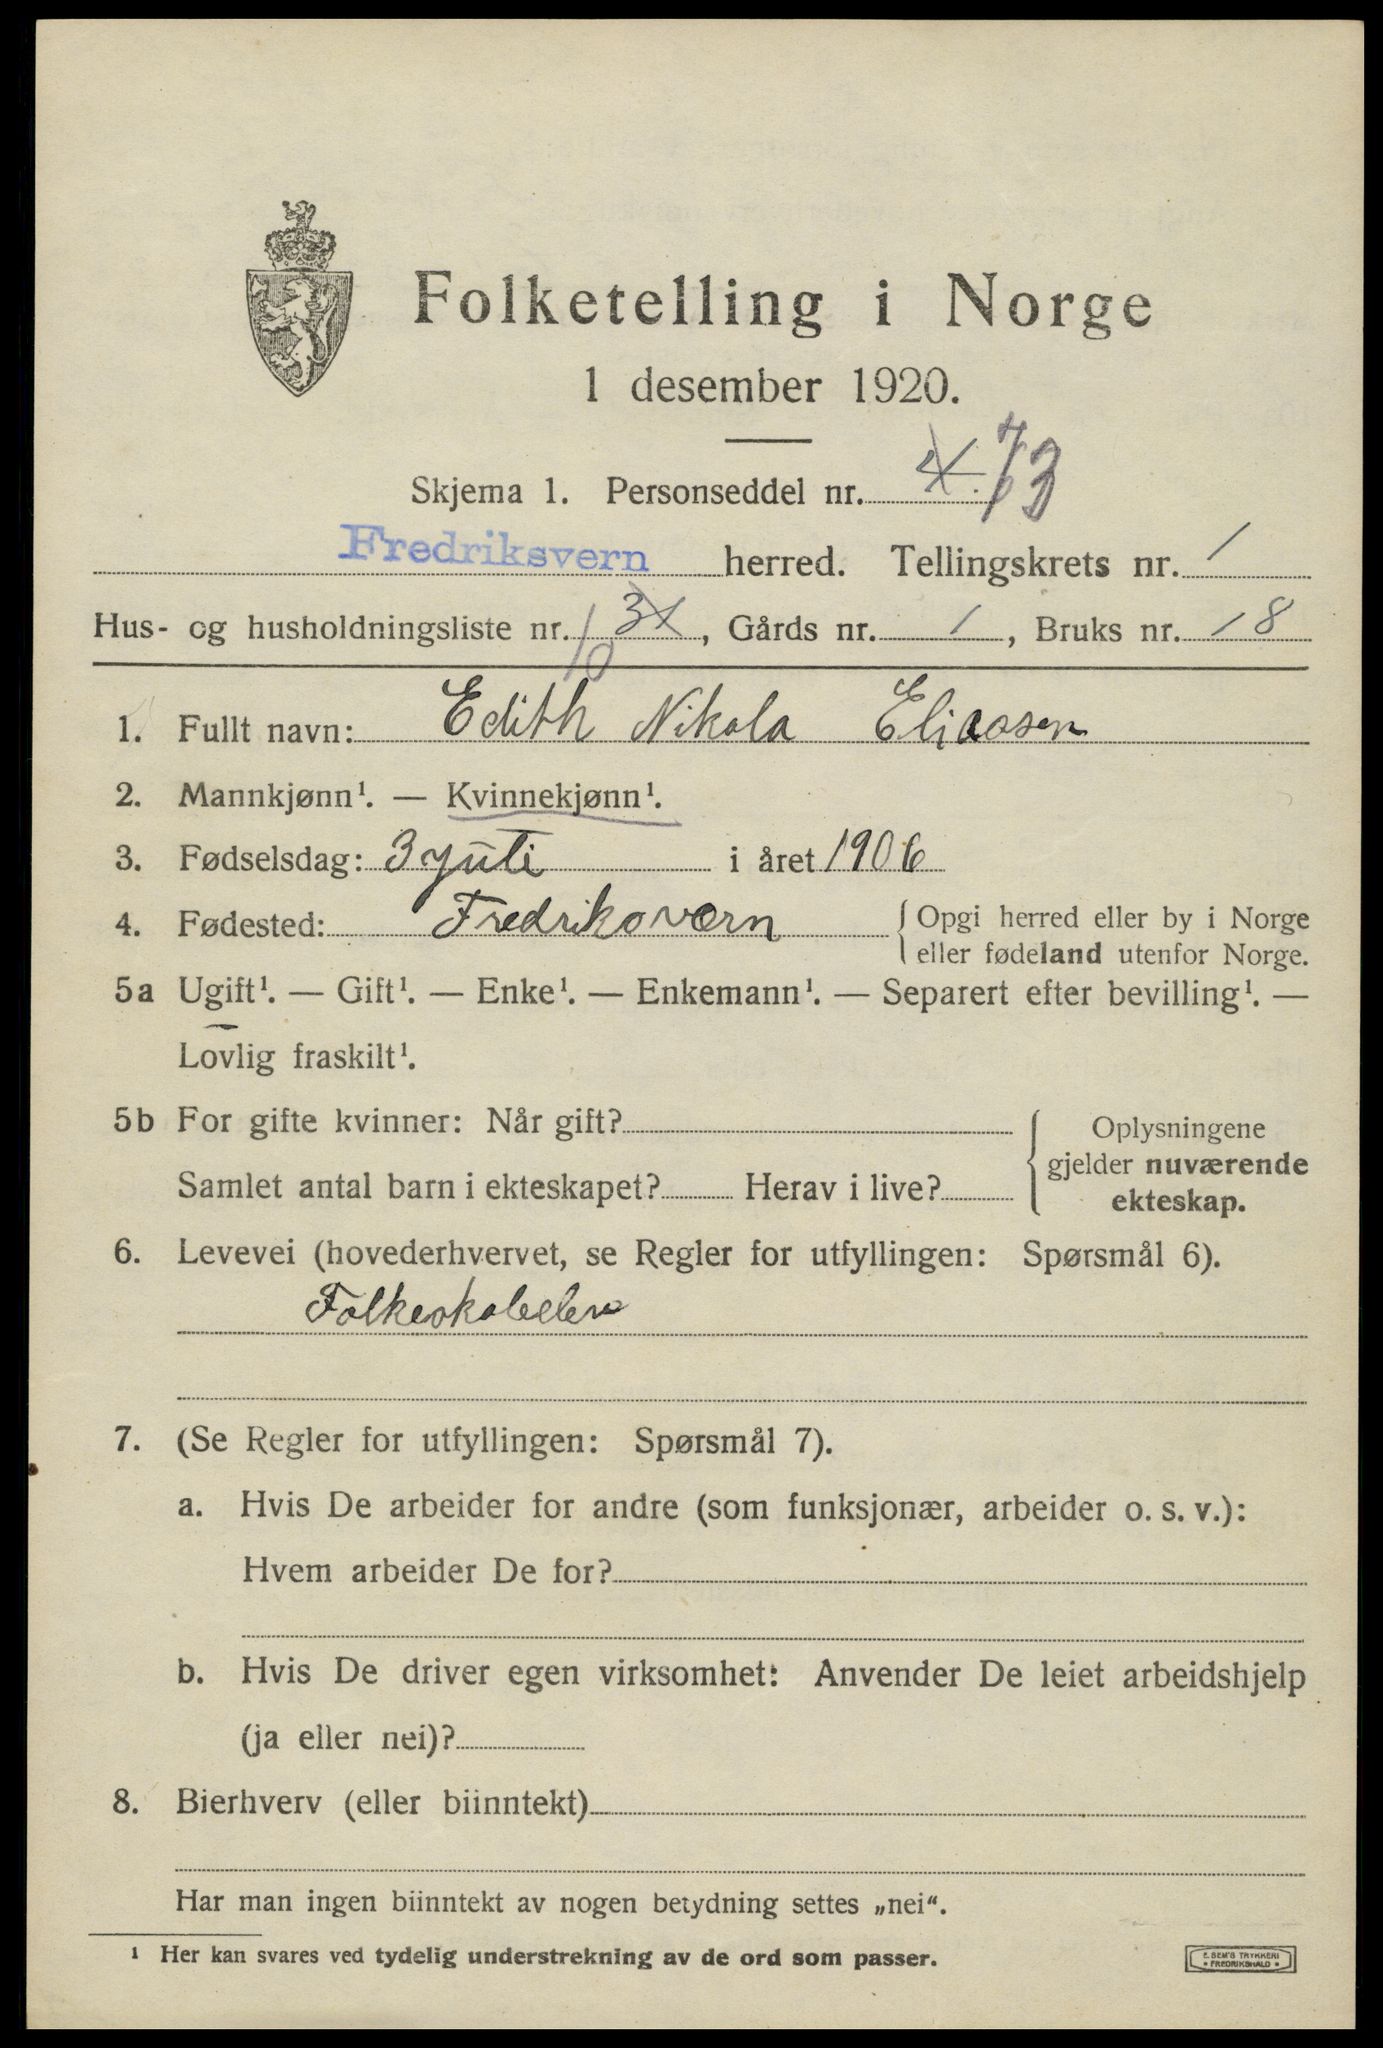 Folketelling i Norge
1 desember 1920.
Skjema 1. Personseddel nr. 4. 73
Fredriksvern herred. Tellingskrets nr. 1
Hus- og husholdningsliste nr. 10, Gårds nr. 1, Bruks nr. 18
1. Fullt navn: Edith Nikola Eliassen
2. Mannkjønn¹. — Kvinnekjønn¹.
3. Fødselsdag: 3 juli i året 1906
4. Fødested: Fredriksværn { Opgi herred eller by i Norge
eller fødeland utenfor Norge.
5a Ugift¹. — Gift¹. — Enke¹. — Enkemann¹. — Separert efter bevilling¹. —
Lovlig fraskilt¹.
5b For gifte kvinner: Når gift?
Samlet antal barn i ekteskapet? Herav i live?
{ Oplysningene
gjelder nuværende
ekteskap.
6. Levevei (hovederhvervet, se Regler for utfyllingen: Spørsmål 6).
Folkeskoleelev
7. (Se Regler for utfyllingen: Spørsmål 7).
a. Hvis De arbeider for andre (som funksjonær, arbeider o. s. v.):
Hvem arbeider De for?
b. Hvis De driver egen virksomhet: Anvender De leiet arbeidshjelp
(ja eller nei)?
8. Bierhverv (eller biinntekt)
Har man ingen biinntekt av nogen betydning settes „nei“.
¹ Her kan svares ved tydelig understrekning av de ord som passer.
E. SEM'S TRYKKERI
• FREDRIKSHALD •